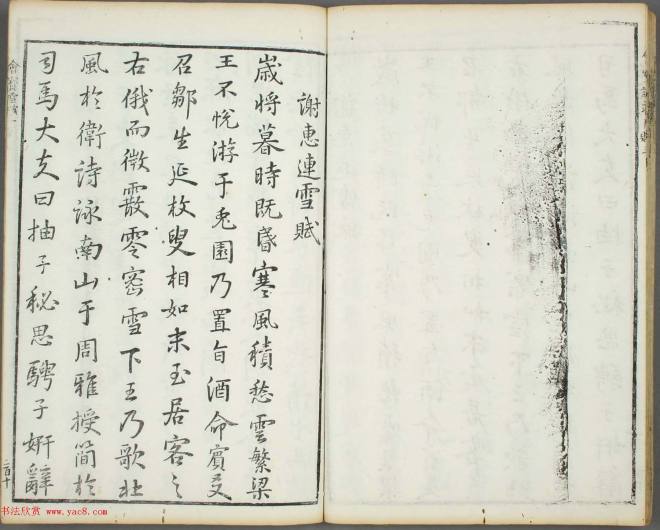 謝惠連雪賦
歲將暮時既昏寒風積愁雲繁梁
王不悅游于兎園乃置旨酒命賓友
召鄒生延枚叟相如末至居客之
右俄而微霰零密雪下王乃歌北
風於衛詩詠南山于周雅授簡於
司馬大夫曰抽子秘思騁子妍辭
二百十
书法欣赏 www.yac8.com